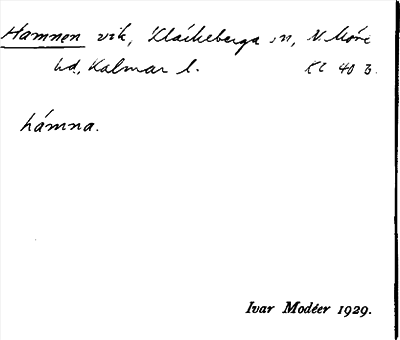 Hamnen vik, Kläckeberga sn, N. Möre
hd, Kalmar l. Kl 40 3.
hámna.
Ivar Modéer 1929.